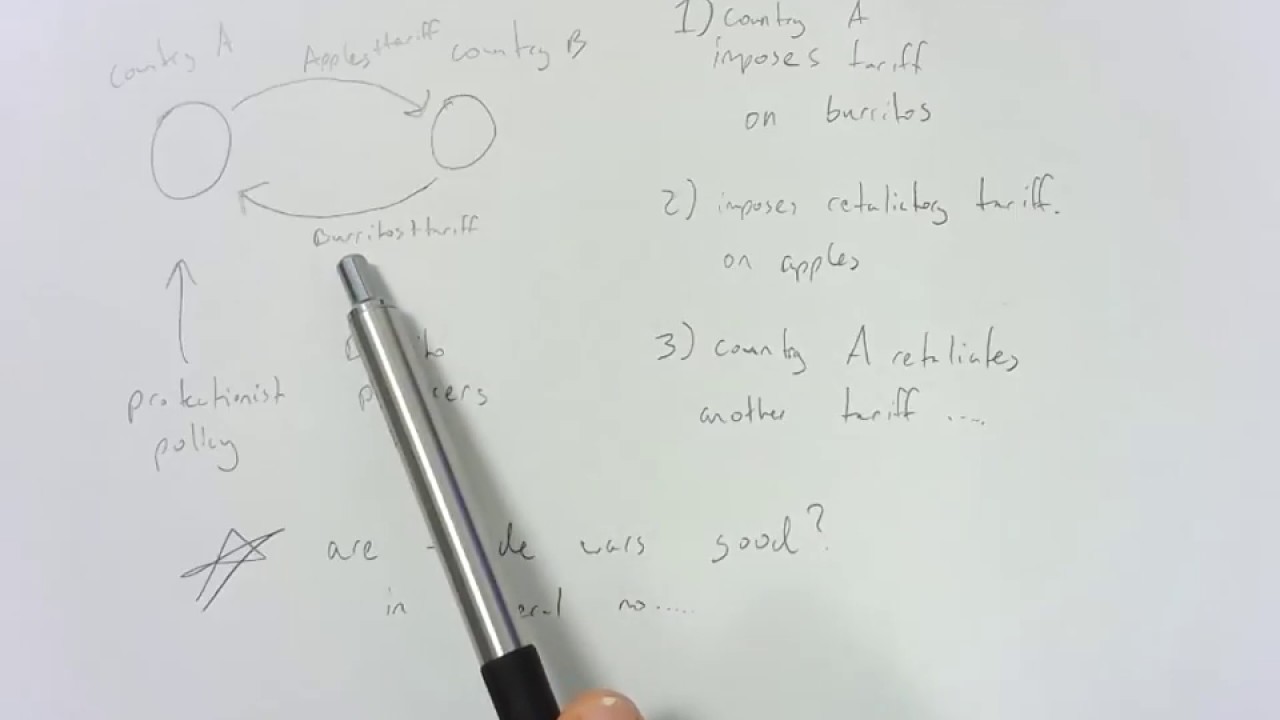 country A
Apples+tariff
country B
Burritos+tariff
protectionist
policy
1) country A
imposes tariff
on burritos
2) imposes retaliatory tariff.
on apples
3) country A retaliates
another tariff ....
are wars good?
in no.....